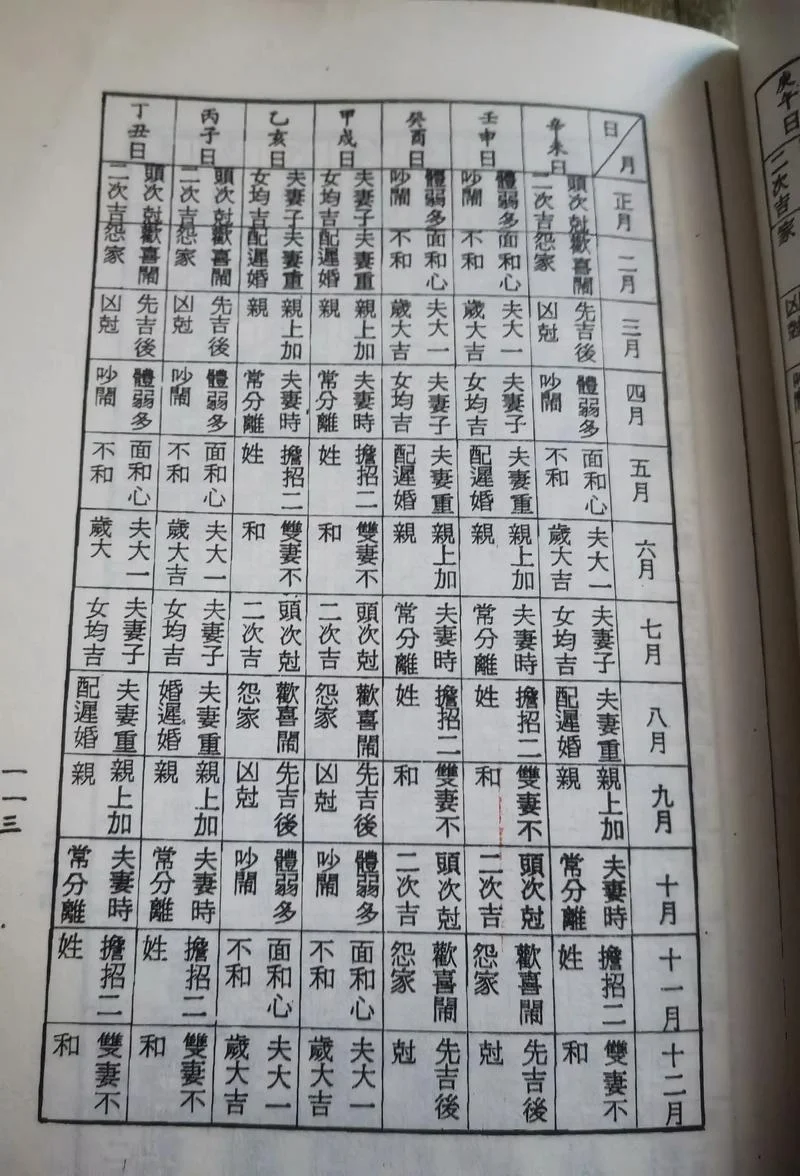 庚午日
二次吉
家
凶尅
日
月
正月
二月
三月
四月
五月
六月
七月
八月
九月
十月
十一月
十二月
辛未日
頭次尅二次吉
歡喜鬧怨家
先吉後凶尅
體弱多吵鬧
面和心不和
夫大一歲大吉
夫妻子女均吉
夫妻重配遲婚
親上加親
夫妻時常分離
擔招二姓
雙妻不和
壬申日
體弱多吵鬧
面和心不和
夫大一歲大吉
夫妻子女均吉
夫妻重配遲婚
親上加親
夫妻時常分離
擔招二姓
雙妻不和
頭次尅二次吉
歡喜鬧怨家
先吉後尅
癸酉日
體弱多吵鬧
面和心不和
夫大一歲大吉
夫妻子女均吉
夫妻重配遲婚
親上加親
夫妻時常分離
擔招二姓
雙妻不和
頭次尅二次吉
歡喜鬧怨家
先吉後尅
甲戌日
夫妻子女均吉
夫妻重配遲婚
親上加親
夫妻時常分離
擔招二姓
雙妻不和
頭次尅二次吉
歡喜鬧怨家
先吉後凶尅
體弱多吵鬧
面和心不和
夫大一歲大吉
乙亥日
夫妻子女均吉
夫妻重配遲婚
親上加親
夫妻時常分離
擔招二姓
雙妻不和
頭次尅二次吉
歡喜鬧怨家
先吉後凶尅
體弱多吵鬧
面和心不和
夫大一歲大吉
丙子日
頭次尅二次吉
歡喜鬧怨家
先吉後凶尅
體弱多吵鬧
面和心不和
夫大一歲大吉
夫妻子女均吉
夫妻重婚遲婚
親上加親
夫妻時常分離
擔招二姓
雙妻不和
丁丑日
頭次尅二次吉
歡喜鬧怨家
先吉後凶尅
體弱多吵鬧
面和心不和
夫大一歲大
夫妻子女均吉
夫妻重配遲婚
親上加親
夫妻時常分離
擔招二姓
雙妻不和
一一三